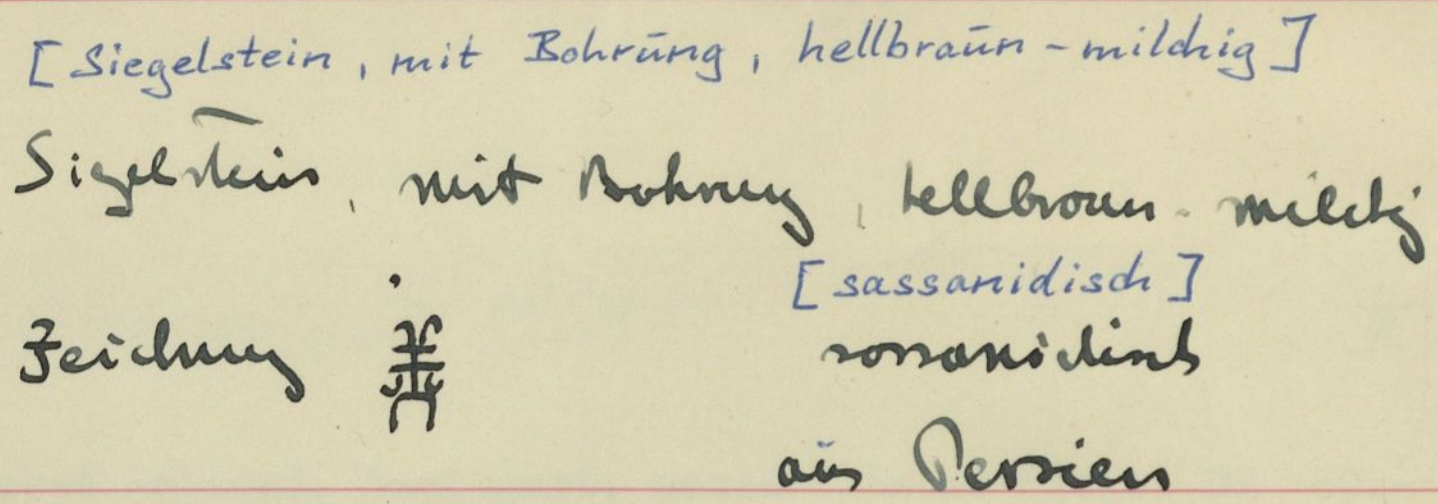 [Siegelstein, mit Bohrung, hellbraun-milchig]
Siegelstein, mit Bohrung, hellbraun-milchig
[sassanidisch]
Zeichnung sassanidisch
aus Persien